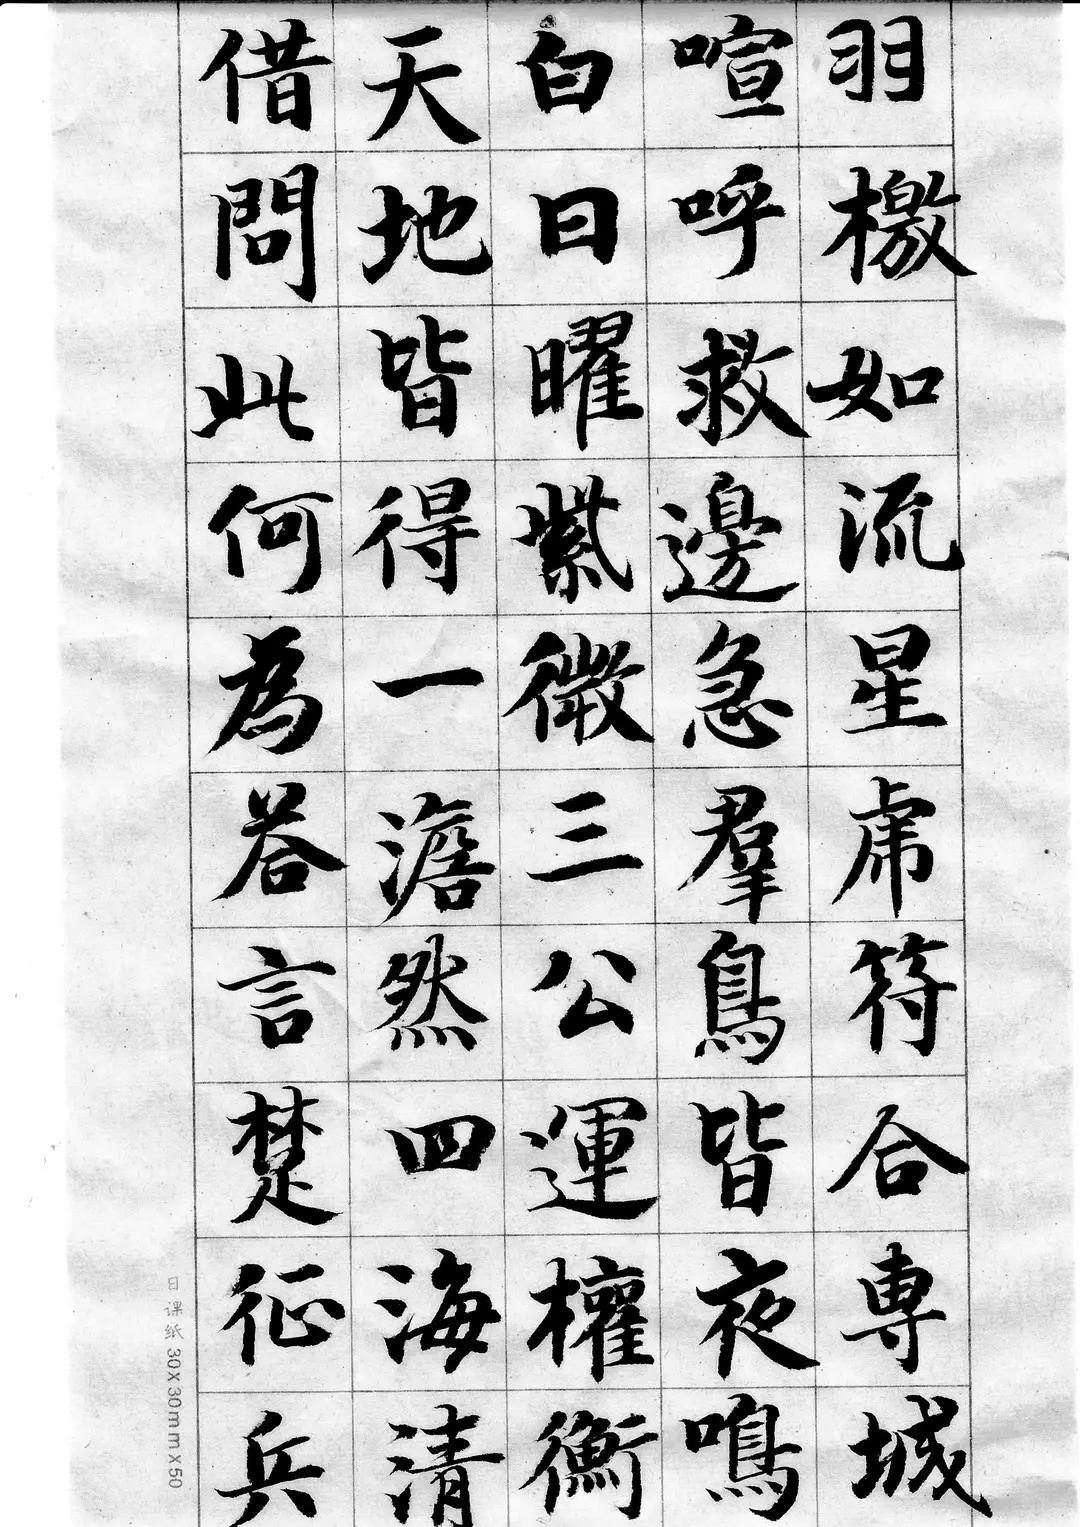 羽檄如流星虎符合專城
喧呼救邊急羣鳥皆夜鳴
白日曜紫微三公運權衡
天地皆得一澹然四海清
借問此何為荅言楚征兵
日课纸 30x30mmx50